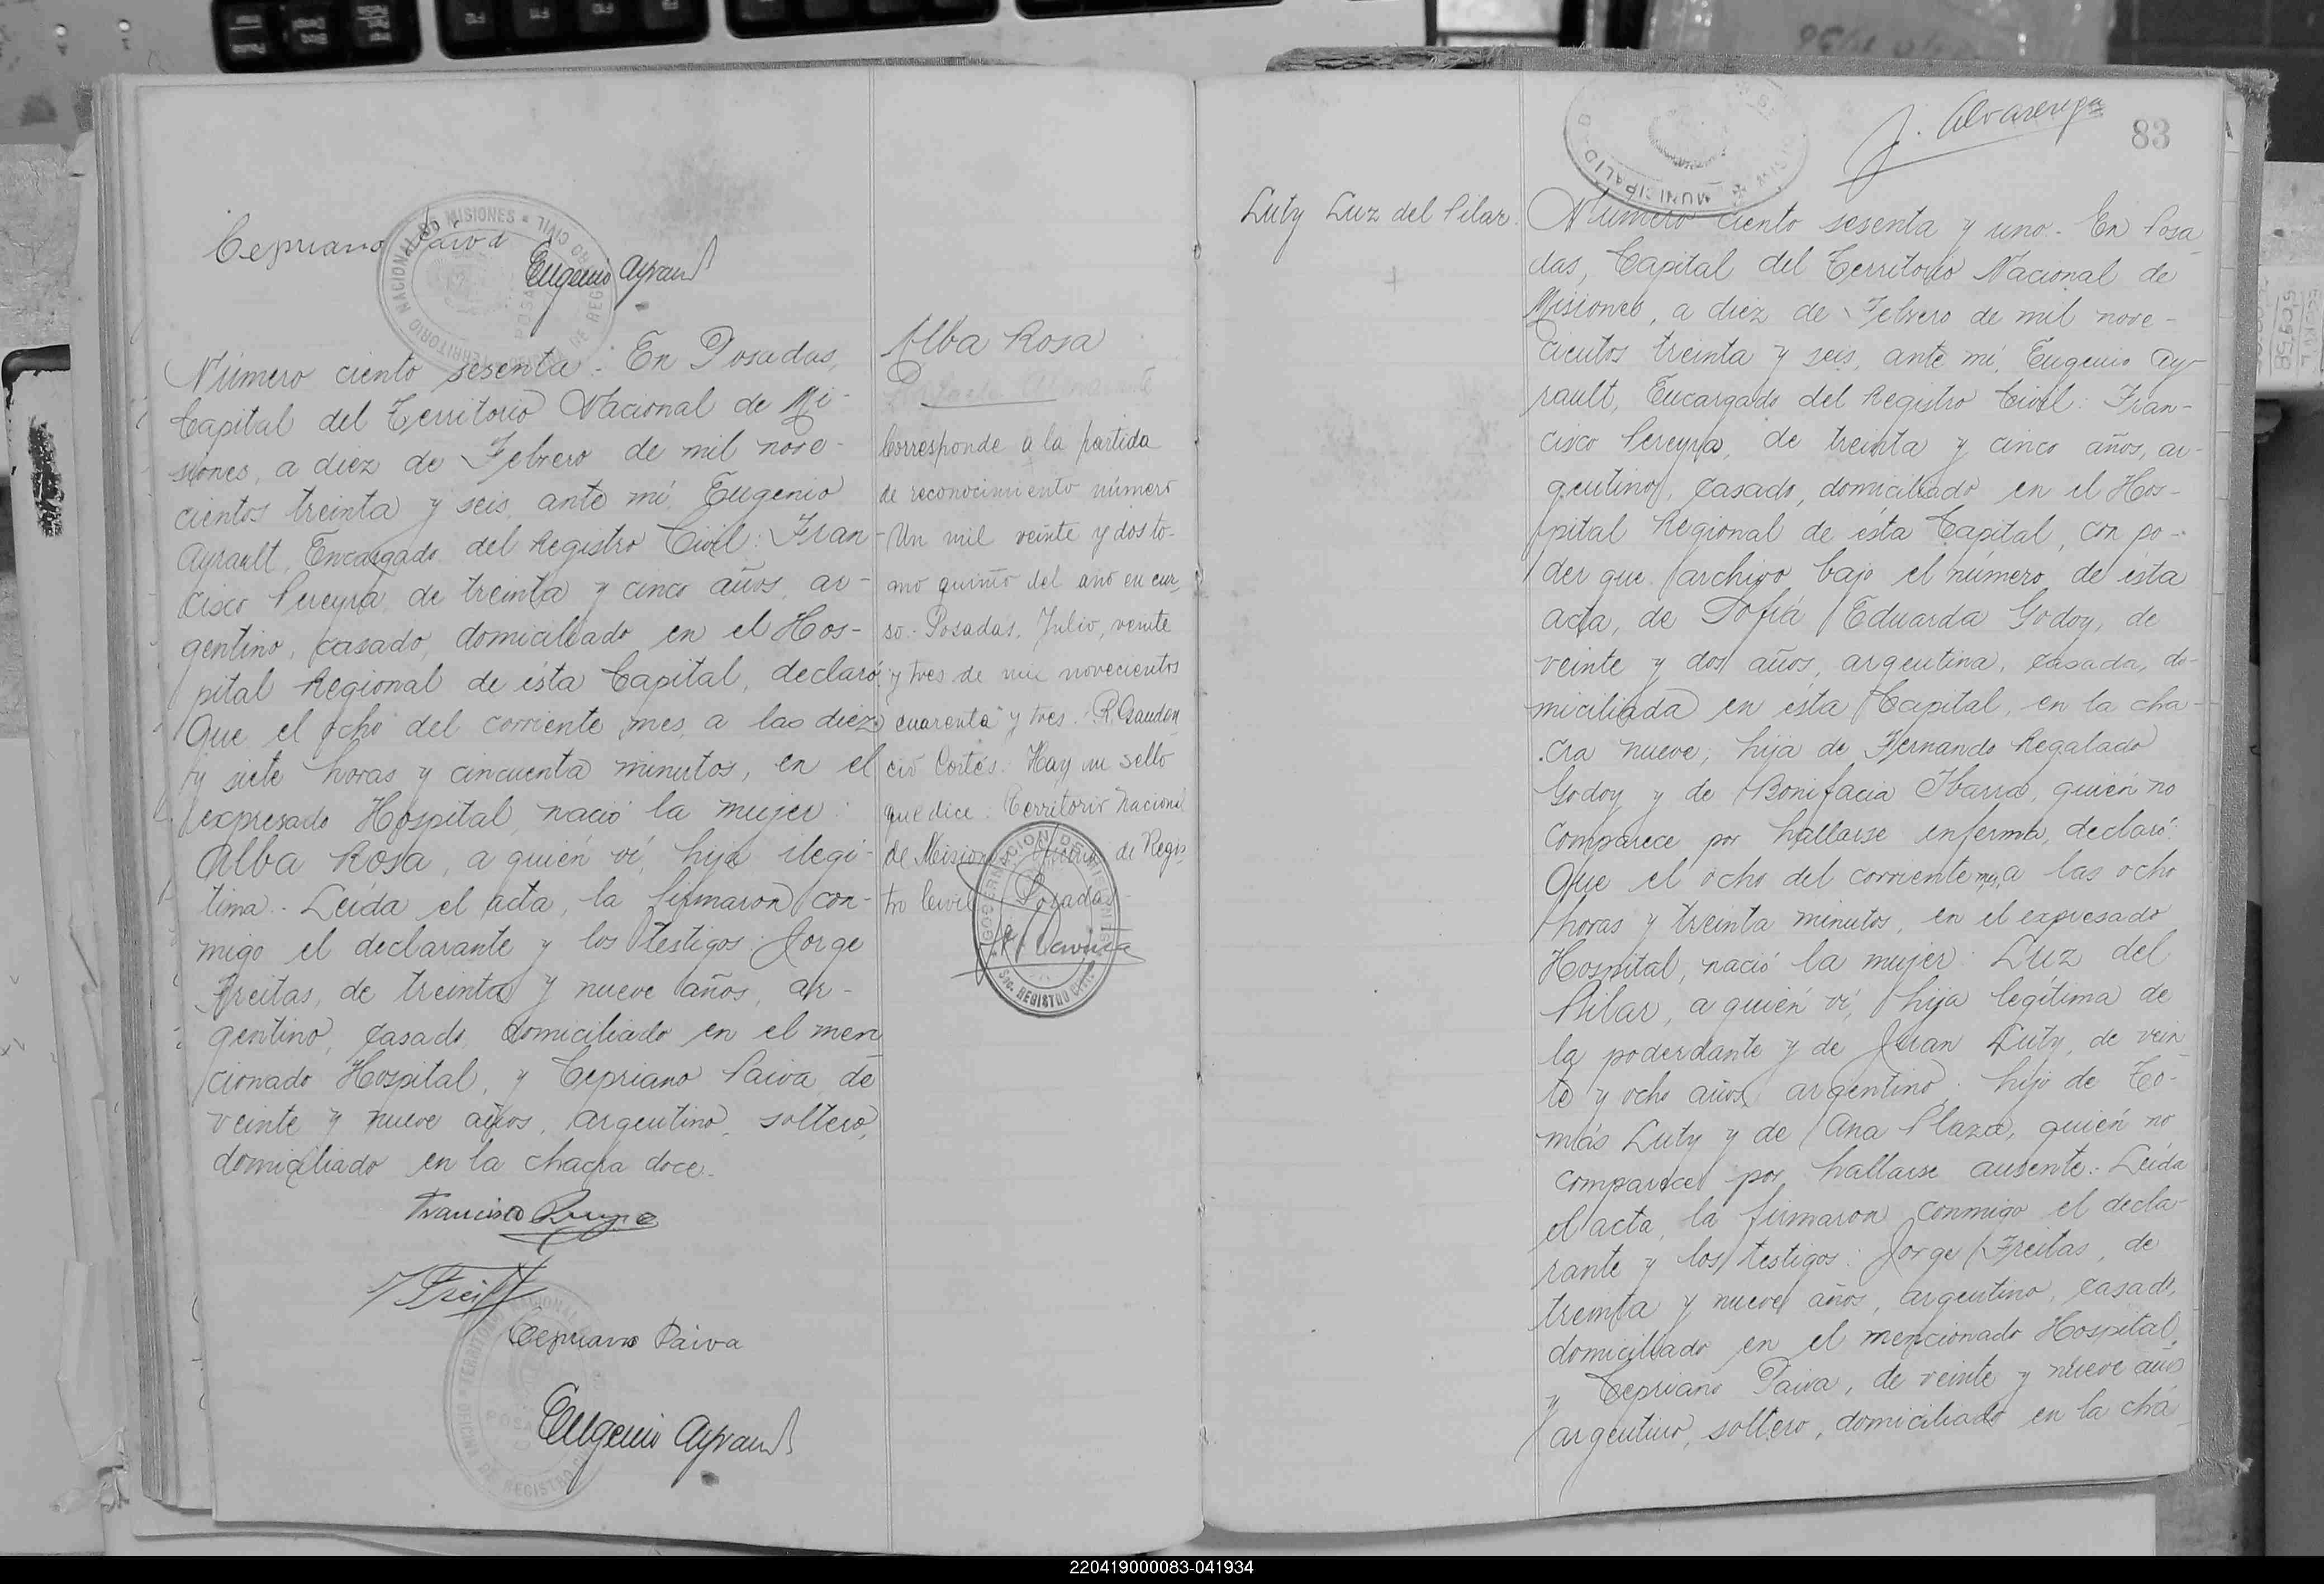 Cepriano Paiva
Eugenio Ayrault
Número ciento sesenta. En Posadas,
Capital del Territorio Nacional de Mi-
siones, a diez de Febrero de mil nove-
cientos treinta y seis, ante mí, Eugenio
Ayrault, Encargado del Registro Civil: Fran-
cisco Pereyra, de treinta y cinco años, ar-
gentino, casado, domiciliado en el Hos-
pital Regional de ésta Capital, declaró:
Que el ocho del corriente mes, a las diez
y siete horas y cincuenta minutos, en el
expresado Hospital, nació la mujer:
Alba Rosa, a quién ví, hija ilegí-
tima.- Leída el acta, la firmaron con-
migo el declarante y los testigos: Jorge
Freitas, de treinta y nueve años, ar-
gentino, casado, domiciliado en el men
cionado Hospital, y Cepriano Paiva de
veinte y nueve años, argentino, soltero,
domiciliado en la chacra doce.
Francisco Pereyra
J Freitas
Cepriano Paiva
Eugenio Ayrault
Alba Rosa
Corresponde a la partida
de reconocimiento número
Un mil veinte y dos to-
mo quinto del año en cur-
so.- Posadas, Julio, veinte
y tres de mil novecientos
cuarenta y tres. R. Gauden
cio Cortés. Hay un sello
que dice: Territorio Nacional
de Misiones Oficina de Regis
tro Civil Posadas
GOBERNACION DE MISIONES
SIC. REGISTRO CIVIL
J. Alvarenga
83
MUNICIPALIDAD
Luty Luz del Pilar.
Número ciento sesenta y uno.- En Posa
das, Capital del Territorio Nacional de
Misiones, a diez de Febrero de mil nove-
cientos treinta y seis, ante mí, Eugenio Ay-
rault, Encargado del Registro Civil: Fran-
cisco Pereyra, de treinta y cinco años, ar-
gentino, casado, domiciliado en el Hos-
pital Regional de ésta Capital, con po-
der que archivo bajo el número de ésta
acta, de Sofía Eduarda Godoy, de
veinte y dos años, argentina, casada, do-
miciliada en ésta Capital, en la cha-
cra nueve; hija de Fernando Regalado
Godoy y de Bonifacia Ibarra, quién no
comparece por hallarse enferma, declaró:
Que el ocho del corriente mes, a las ocho
horas y treinta minutos, en el expresado
Hospital, nació la mujer: Luz del
Pilar, a quién ví, hija legítima de
la poderdante y de Juan Luty, de vein
te y ocho años, argentino; hijo de To-
más Luty y de Ana Plaza, quién no
comparece por hallarse ausente.- Leída
el acta, la firmaron conmigo el decla-
rante y los testigos: Jorge Freitas, de
treinta y nueve años, argentino, casado,
domiciliado en el mencionado Hospital,
y Cepriano Paiva, de veinte y nueve años
argentino, soltero, domiciliado en la cha
220419000083-041934